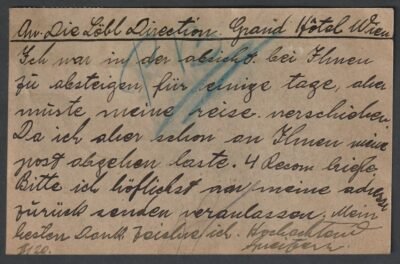 An Die Löbl Direction Grand Hôtel Wien
Ich war in der absicht bei Ihnen
zu absteigen für einige tage, aber
muste meine reise verschieben
Da ich aber schon an Ihnen meine
post abgehen laste. 4 Recom briefe
Bitte ich höflichst an meine adresse
zurück senden veranlassen, Mein
besten Dank zeichne ich. Hochachtend